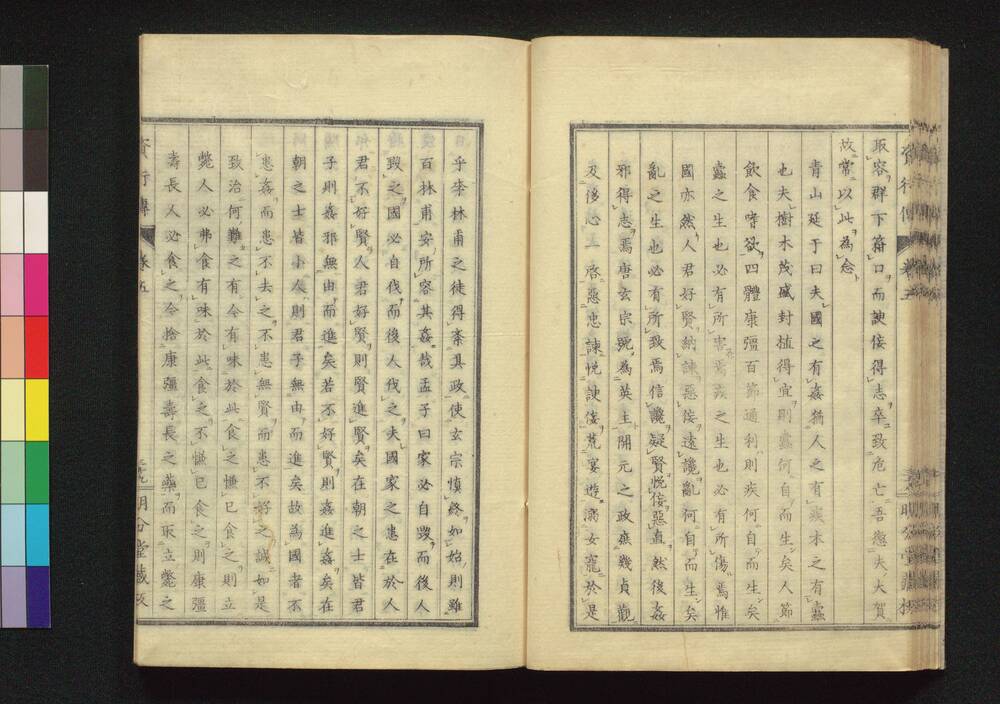 取容群下箝口而諛佞得志卒致危亡吾懲夫大賀
故常以此為念
青山延于曰夫國之有姦猶人之有疾木之有蠹
也夫樹木茂盛封植得宜則蠹何自而生矣人節
飲食嗜欲四體康彊百節通利則疾何自而生矣
蠹之生也必有所害焉疾之生也必有所傷焉惟
國亦然人君好賢納諫惡佞遠讒亂何自而生矣
亂之生也必有所致焉信讒疑賢悅佞惡直然後姦
邪得志焉唐玄宗號為英主開元之政庶幾貞觀
及後心一啓惡忠諫悅諛佞荒宴遊溺女寵於是
乎李林甫之徒得紊其政使玄宗慎終如始則雖
百林甫安所容其姦哉孟子曰家必自毀而後人
毀之國必自伐而後人伐之夫國家之患在於人
君不好賢人君好賢則賢進賢矣在朝之士皆君
子則姦邪無由而進矣若不好賢則姦進姦矣在
朝之士皆小人則君子無由而進矣故為國者不
患姦而患不去之不患無賢而患不好之誠如是
致治何難之有今有味於此食之慊已食之則立
斃人必弗食有味於此食之不慊已食之則康彊
壽長人必食之今捨康彊壽長之藥而取立斃之
資行傳 卷五
明分堂藏板